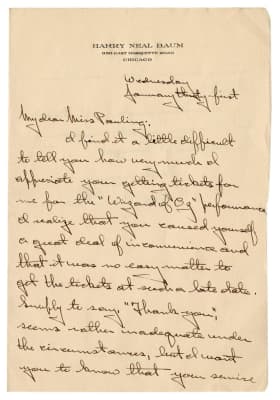 HARRY NEAL BAUM
EAST MARQUETTE ROAD
CHICAGO
Wednesday
January thirty first
My dear Miss Pauling:
I find it a little difficult
to tell you how very much I
appreciate your getting tickets for
me for the "Wizard of Oz" performance
I realize that you caused yourself
a great deal of inconvenience and
that it was no easy matter to
get the tickets at such a late date.
Simply to say, "Thank you",
seems rather inadequate under
the circumstances, but I want
you to know that your service